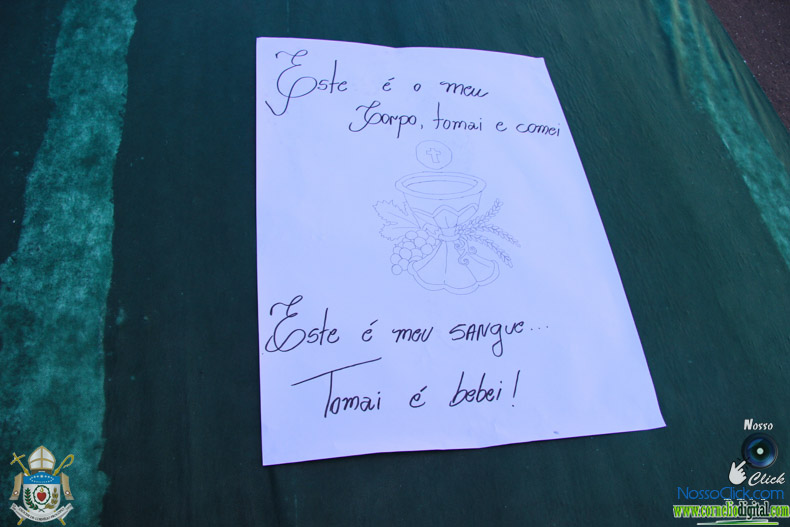 Este é o meu
Corpo, tomai e comei
Este é meu SANGue...
Tomai é bebei!
Nosso
Click
NossoClick.com
www.corneliodigital.com